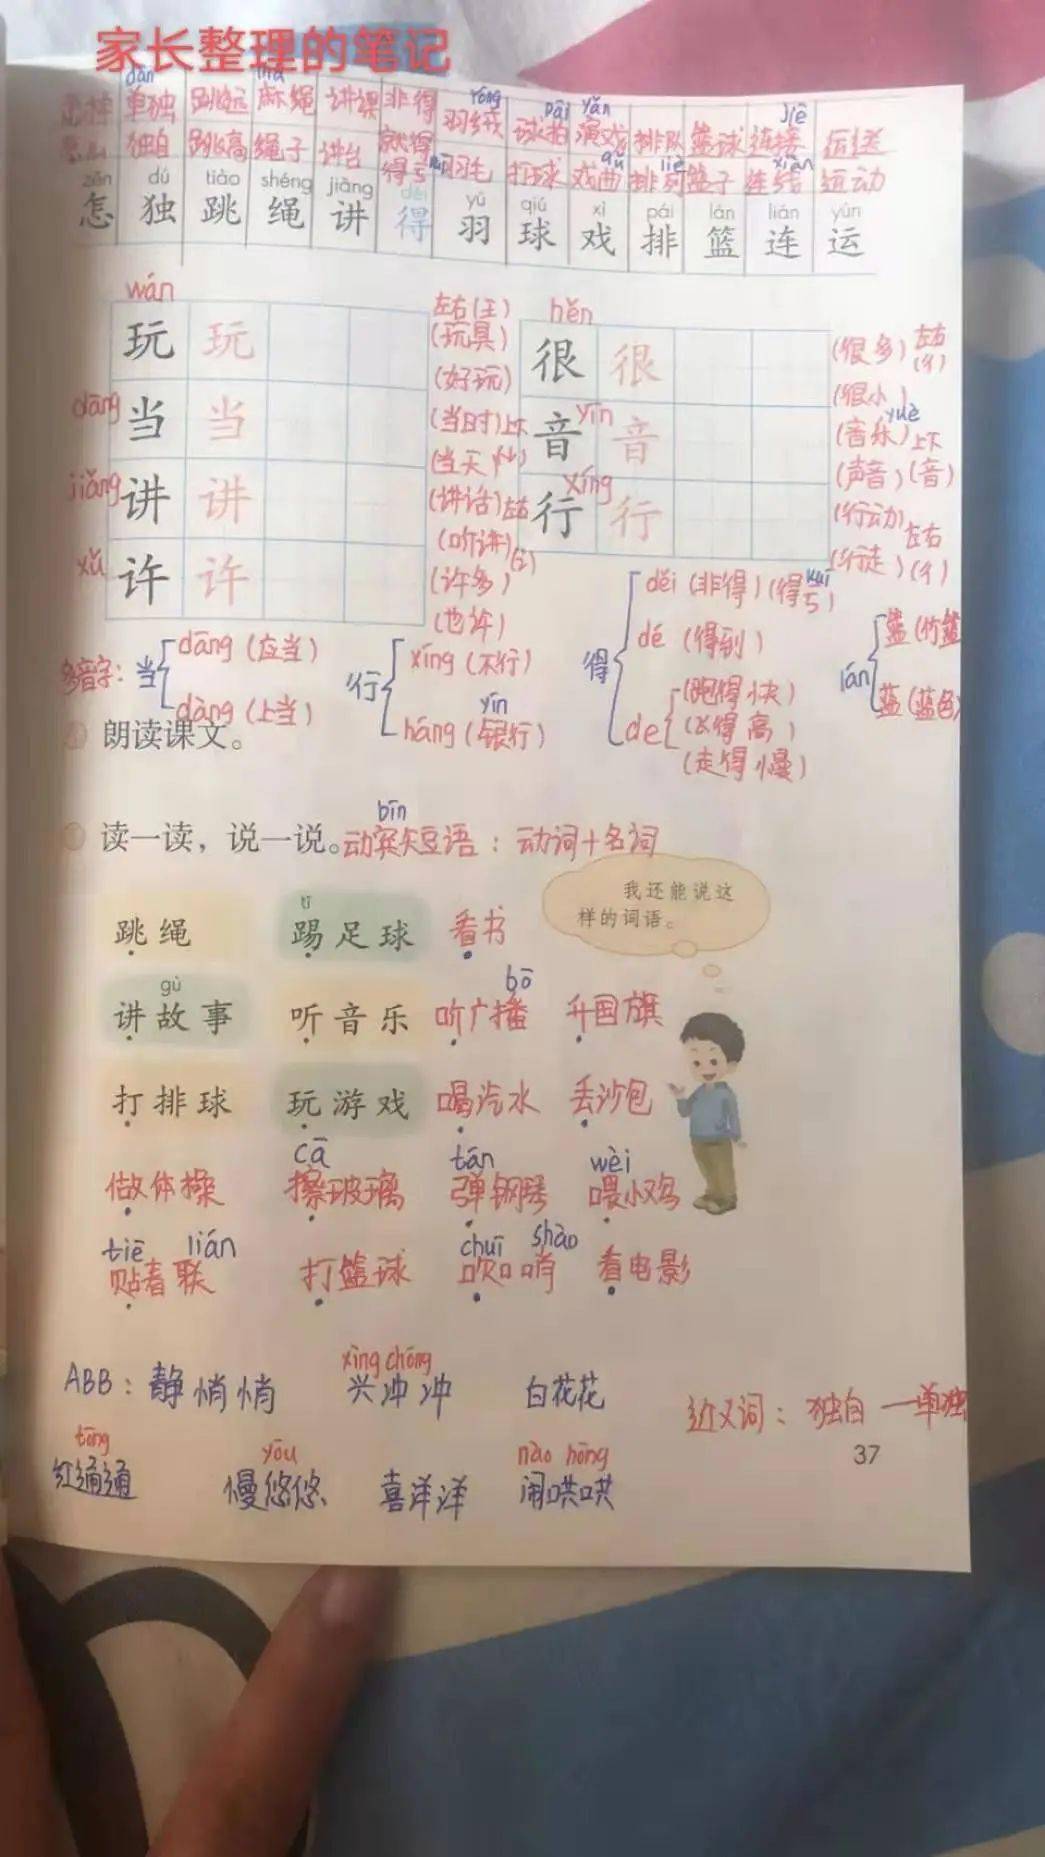 家长整理的笔记
dān má
怎样 单独 跳远 麻绳 讲课 非得 羽绒 róng 球拍 pāi 演戏 yǎn 排队 篮球 连接 jiē 运送
怎么 独自 跳高 绳子 讲台 就得 得亏 羽毛 打球 戏曲 qǔ 排列 liè 篮子 连线 xiàn 运动
zěn dú tiào shéng jiǎng děi yǔ qiú xì pái lán lián yùn
怎 独 跳 绳 讲 得 羽 球 戏 排 篮 连 运
wán 左右(王) hěn
玩 玩 (玩具) 很 很 (很多) 左右(彳)
(好玩) (很小)
dāng 当 当 (当时) 上下 音 yīn 音 (音乐) yuè 上下
(当天) (声音) (音)
jiǎng 讲 讲 (讲话) 左右 行 xíng 行 (行动) 左右
(听讲) (讠) (行走) (彳)
xǔ 许 许 (许多)
(也许)
děi (非得) (得亏) kuī
多音字: 当 dāng (应当) 行 xíng (不行) 得 dé (得到) lán 篮 (竹篮)
dàng (上当) háng (银行) yín de (跑得快) 蓝 (蓝色)
朗读课文。 (飞得高)
(走得慢)
读一读，说一说。动宾短语 bīn : 动词+名词
我还能说这
样的词语。
跳绳 踢足球 tī 看书
讲故事 gù 听音乐 听广播 bō 升国旗
打排球 玩游戏 喝汽水 丢沙包
做体操 擦玻璃 cā 弹钢琴 tán 喂小鸡 wèi
贴春联 tiē lián 打篮球 吹口哨 chuī shào 看电影
ABB: 静悄悄 兴冲冲 xìng chōng 白花花
近义词: 独自 — 单独
红通通 tōng 慢悠悠 yōu 喜洋洋 闹哄哄 nào hōng
37